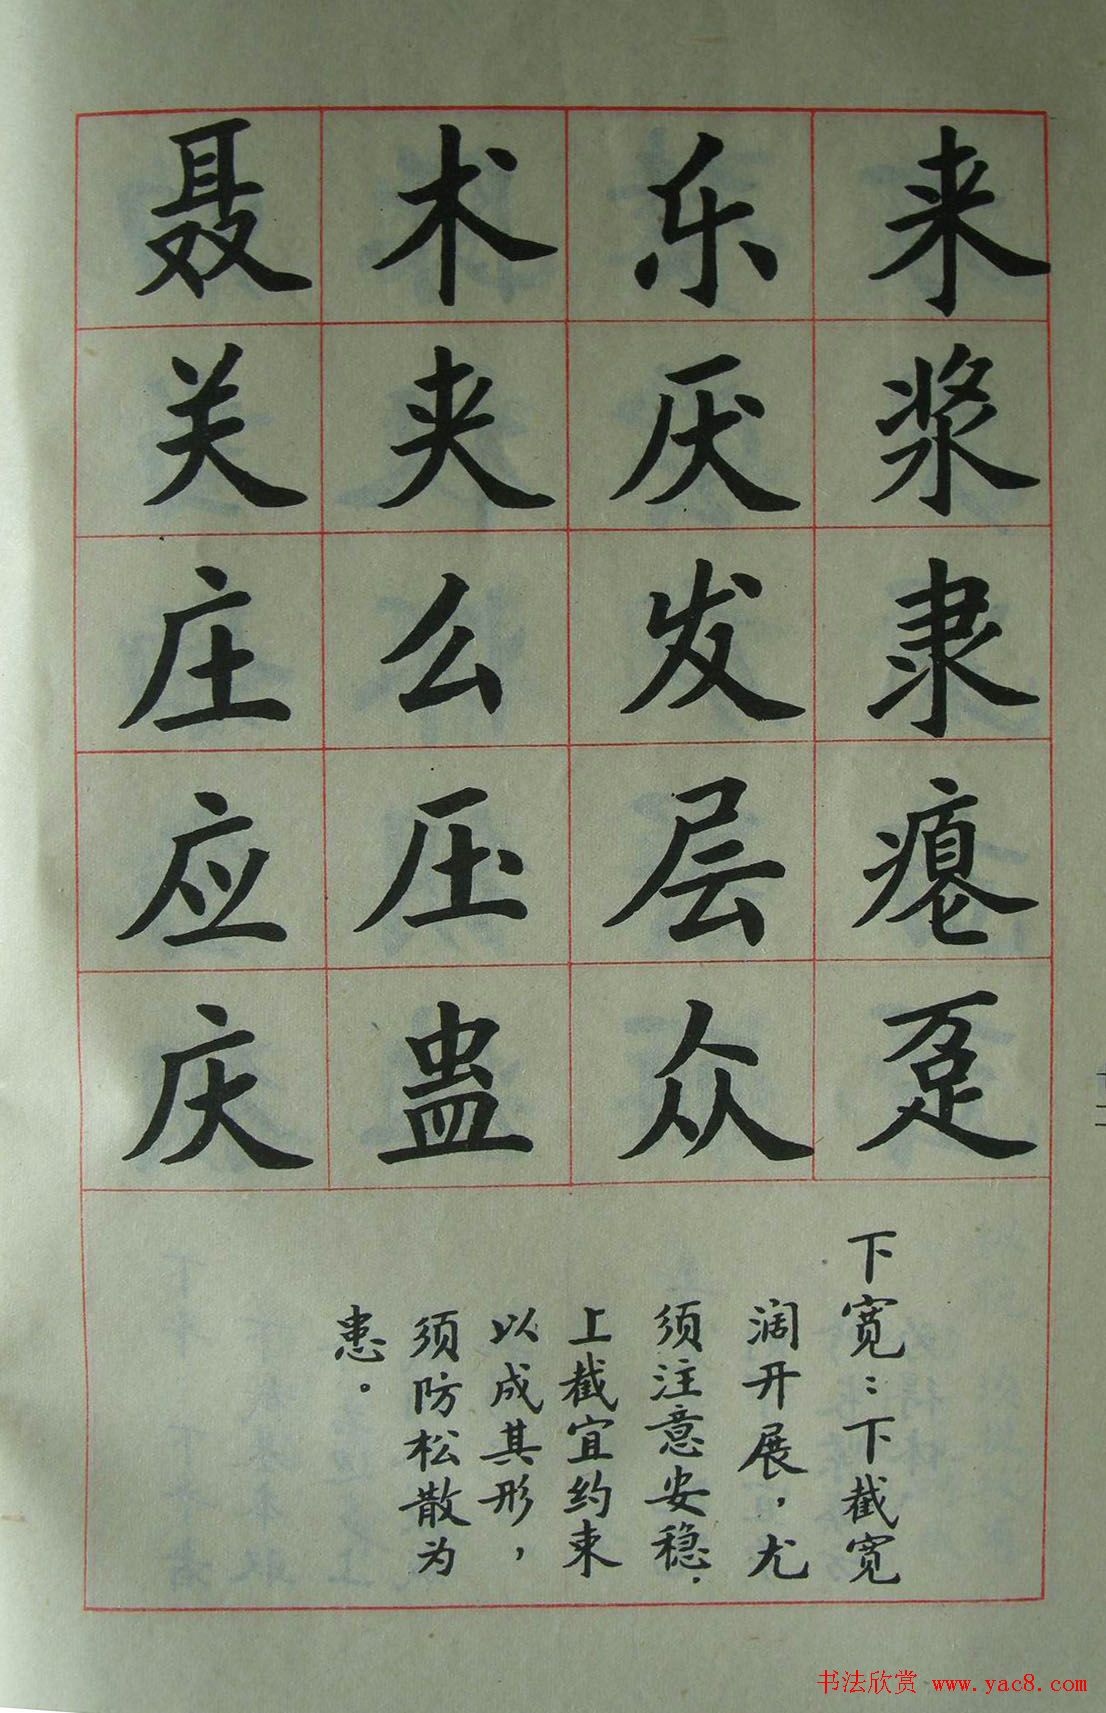 来浆隶瘪趸
乐厌发层众
术夹么压蛊
聂关庄应庆
下宽：下截宽
阔开展，尤
须注意安稳.
上截宜约束
以成其形，
须防松散为
患。
书法欣赏 www.yac8.com